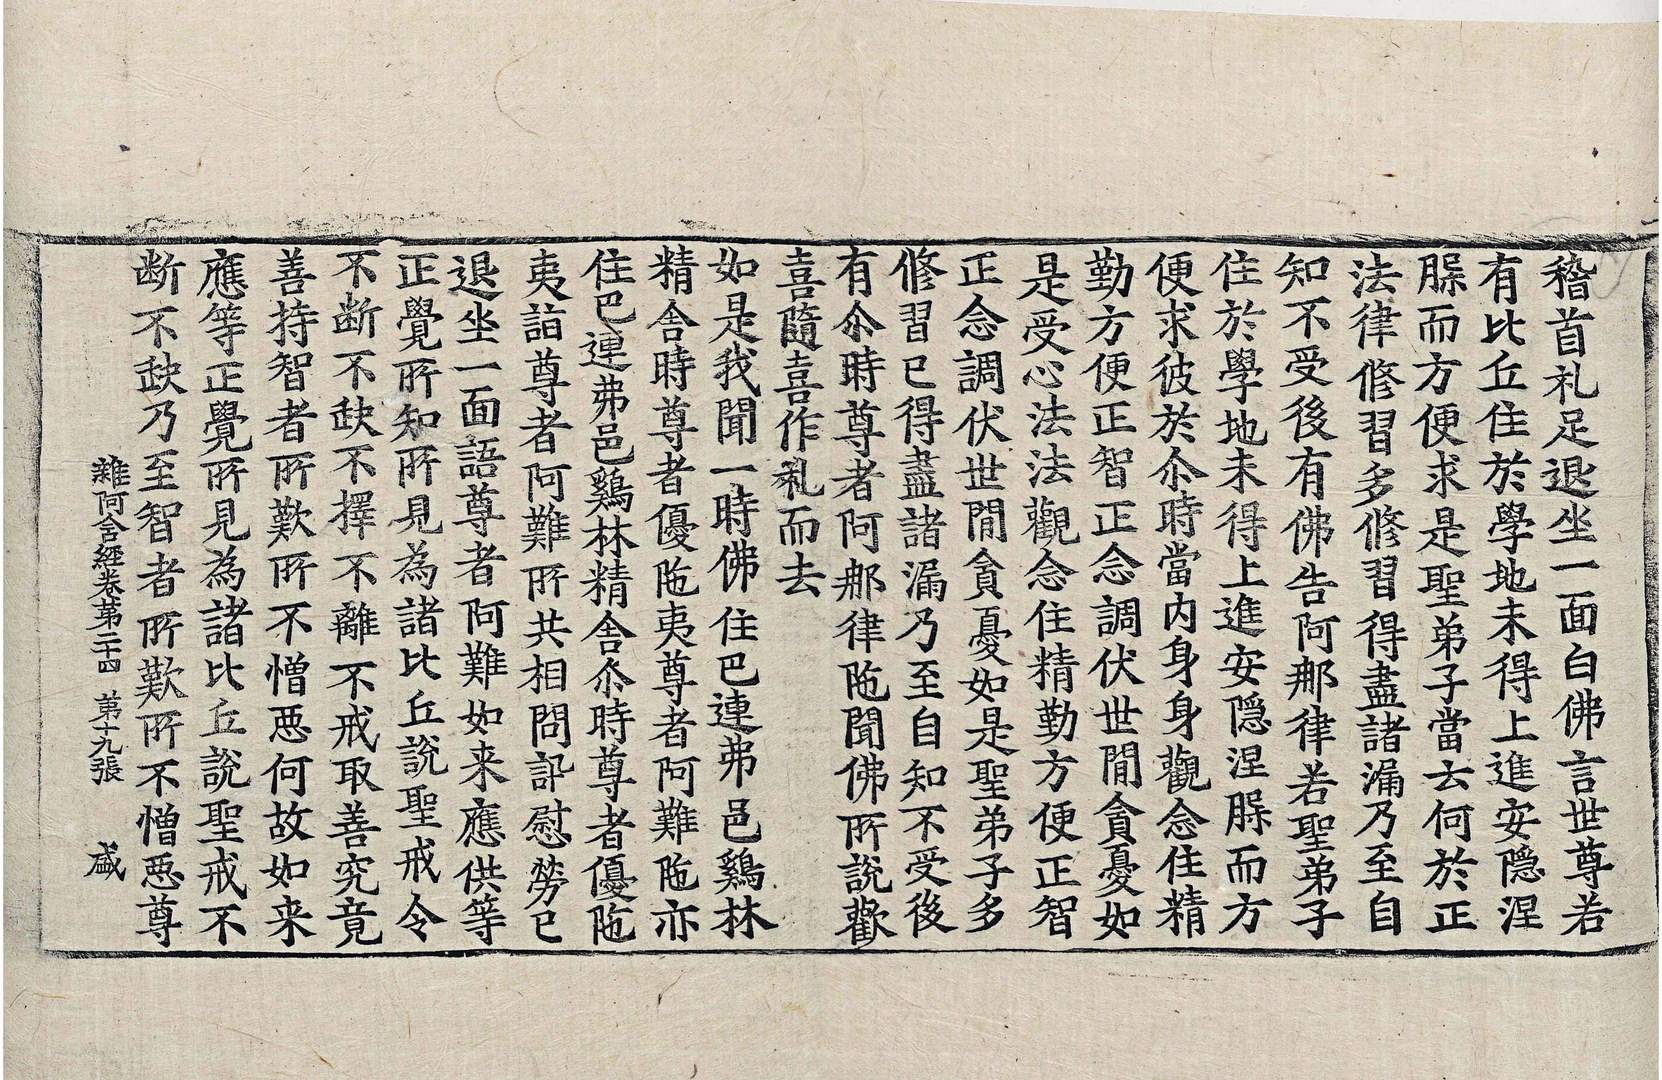 稽首礼足退坐一面白佛言世尊若
有比丘住於學地未得上進安隱涅
槃而方便求是聖弟子當云何於正
法律修習多修習得盡諸漏乃至自
知不受後有佛告阿那律若聖弟子
住於學地未得上進安隱涅槃而方
便求彼於尒時當内身身觀念住精
勤方便正智正念調伏世閒貪憂如
是受心法法觀念住精勤方便正智
正念調伏世閒貪憂如是聖弟子多
修習已得盡諸漏乃至自知不受後
有尒時尊者阿那律陁聞佛所說歡
喜隨喜作礼而去
如是我聞一時佛住巴連弗邑鷄林
精舍時尊者優陁夷尊者阿難陁亦
住巴連弗邑鷄林精舍尒時尊者優陁
夷詣尊者阿難所共相問訊慰勞已
退坐一面語尊者阿難如来應供等
正覺所知所見為諸比丘說聖戒令
不断不缺不擇不離不戒取善究竟
善持智者所歎所不憎惡何故如来
應等正覺所見為諸比丘說聖戒不
断不缺乃至智者所歎所不憎惡尊
雜阿含經卷第二十四 第十九張 盛